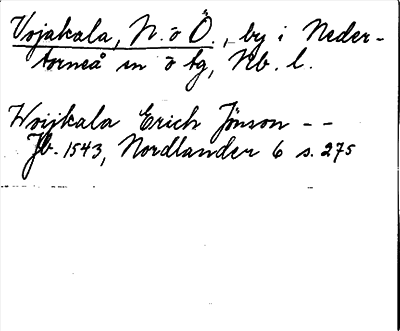 Vojakala, N. o Ö., by i Neder-
torneå sn o tg, Nb. l.
Woijkala Erich Jönson - -
Jb. 1543, Nordlander 6 s. 275